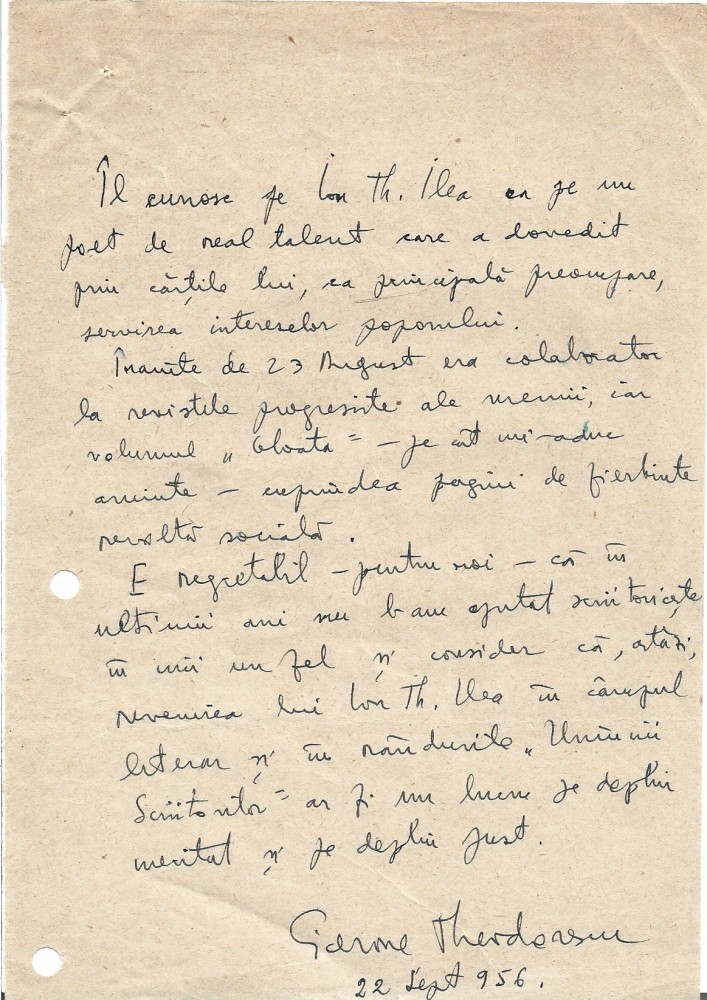 Îl cunosc pe Ion Th. Ilea ca pe un
poet de real talent care a dovedit
prin cărțile lui, ca principală preocupare,
servirea intereselor poporului.
Înainte de 23 August era colaborator
la revistele progresiste ale vremii, iar
volumul „Gloata" – pe cât mi-aduc
aminte – cuprindea pagini de fierbinte
revoltă socială.
E regretabil – pentru noi – că în
ultimii ani nu l-am ajutat scriitoricește
în nici un fel și consider că, astăzi,
revenirea lui Ion Th. Ilea în câmpul
literar și în rândurile „Uniunii
Scriitorilor" ar fi un lucru pe deplin
meritat și pe deplin just.
Cicerone Theodorescu
22 Sept 956.